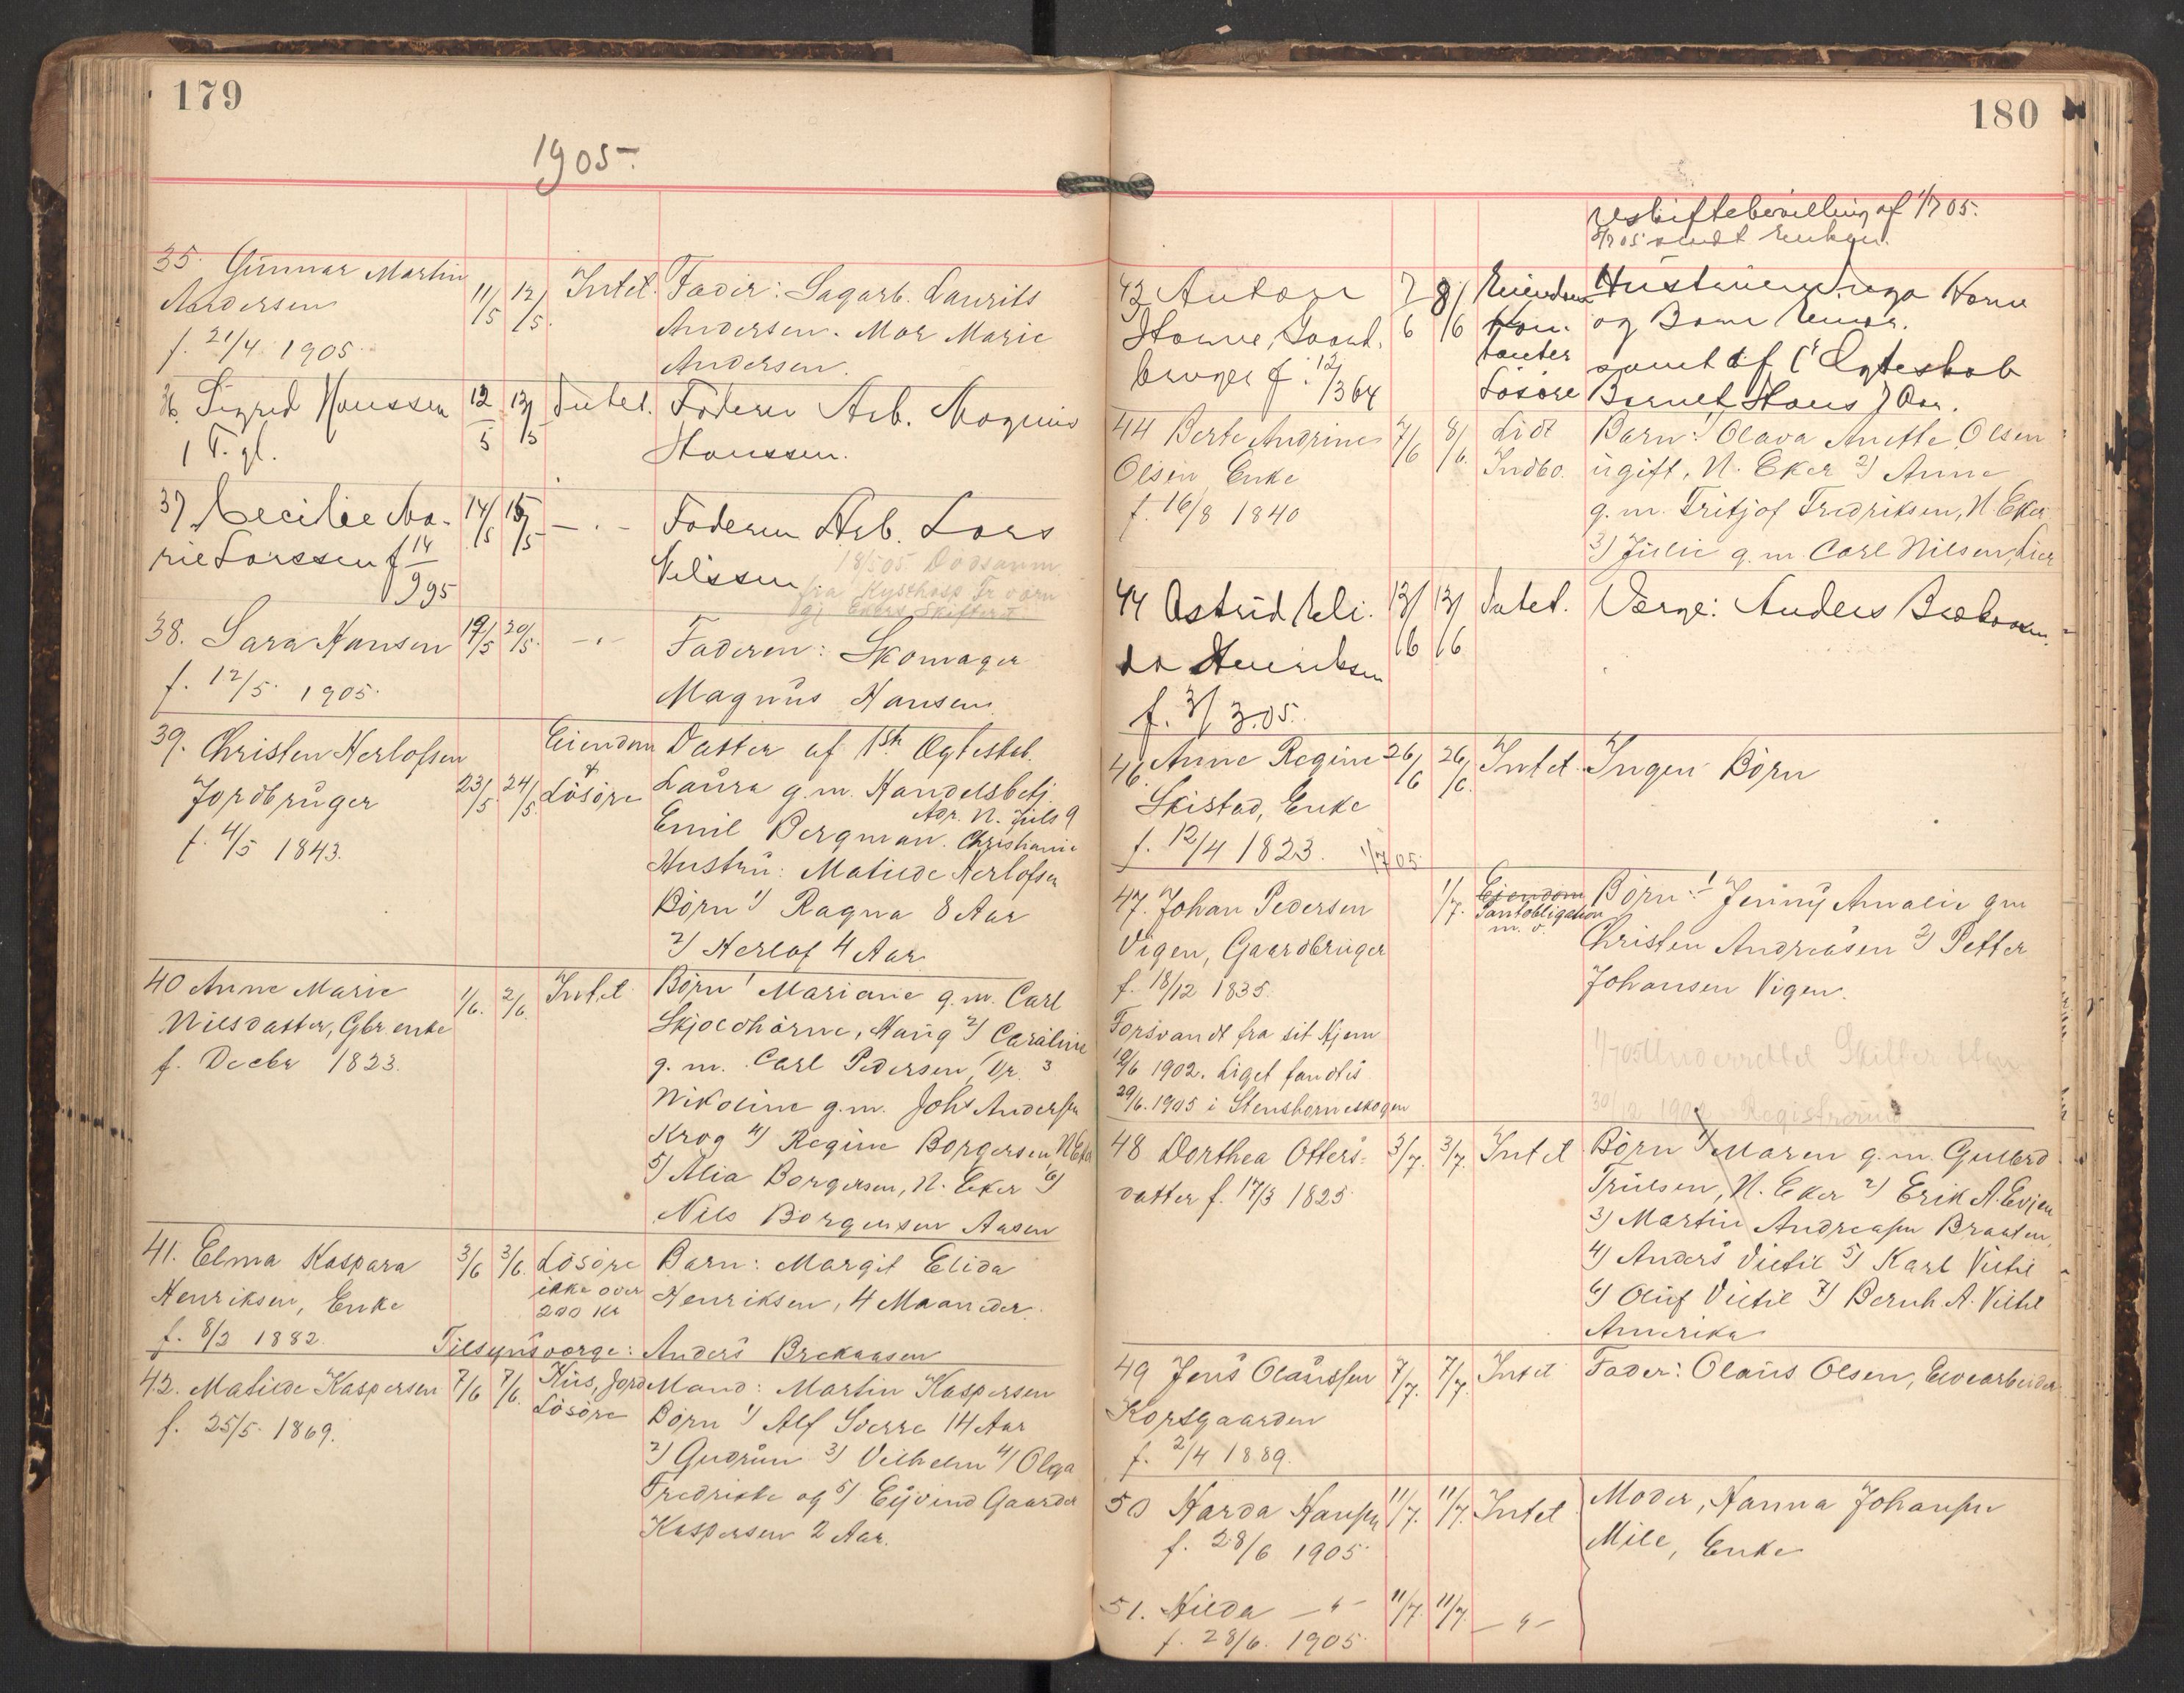 179
1905
35. Gunnar Martin
Andersen
f. 21/4 1905
11/5 12/5. Intet. Fader: Sagarb. Laurits
Andersen. Mor Marie
Andersen.
36. Sigrid Hanssen
1 T. gl.
12/5 13/5 Intet. Faderen Arb. Magnus
Hanssen.
37 Cecilie Ma-
rie Larssen f 14/9 95
14/5 15/5 — " — Faderen Arb. Lars
Nilssen
18/5 05 Dødsanm.
fra Kysthosp. Fr.værn
Ekers Skifteret
38. Sara Hansen
f. 12/5 1905.
19/5 20/5. — " — Faderen: Skomager
Magnus Hansen
39. Christen Herlofsen
Jordbruger
f. 4/5 1843.
23/5 24/5. Eiendom
+
Løsøre
Datter af 1ste Ægteskab.
Laura g.m. Handelsbetj.
Emil Bergman. Adr. N. Juls g
Christiania
Hustru: Matilde Herlofsen
Børn 1/ Ragna 8 Aar
2/ Herlof 4 Aar
40 Anne Marie
Nilsdatter, Gbr. enke
f. Decbr 1823.
1/6. 2/6. Intet Børn 1 Mariane g.m. Carl
Skjoldhorne, Haug 2/ Caroline
g. m. Carl Pedersen, Dr. 3
Nikoline g.m. Johs Andersen
Krog 4/ Regine Borgersen N Eker
5/ Alia Borgersen, N. Eker 6/
Nils Borgersen Aasen
41. Elma Kaspara
Henriksen, Enke
f. 8/3 1882.
3/6 3/6. Løsøre
ikke over
200 Kr
Barn: Margit Elida
Henriksen, 4 Maaneder.
Tilsynsværge: Anders Brekaasen
42. Matilde Kaspersen
f. 25/5 1869.
7/6 7/6. Hus, Jord
Løsøre
Mand: Martin Kaspersen
Børn 1/ Alf Sverre 14 Aar
2/ Gudrun 3/ Vilhelm 4/ Olga
Fredrikke og 5/ Eyvind Gaarder
Kaspersen 2 Aar.
180
uskiftebevilling af 1/7 05.
8/7 05 sendt Enken.
43 Anton
Horne, Gaard-
bruger f. 12/3 64
7/6 8/6 Eiendom
Kon-
tanter
Løsøre
Hustruen Inga Horne
og Børn
samt af 1' Ægteskab
Barnet Hans 7 Aar.
44 Berte Andrine
Olsen Enke
f. 16/8 1840
7/6 8/6. Lidt
Indbo.
Børn: 1/ Olava Anette Olsen
ugift, N. Eker 2/ Anne
g. m. Fritjof Fredriksen, N. Eker
3/ Julie g. m. Carl Nilsen, Lier
44 Astrid Eli-
da Henriksen
f. 3/3.05.
13/6 13/6 Intet. Værge: Anders Brekaasen.
46. Anne Regine
Skistad, Enke
f. 12/4 1823.
26/6 26/6. Intet. Ingen Børn
1/7 05
47. Johan Pedersen
Vigen, Gaardbruger
f. 18/12 1835.
Forsvandt fra sit Hjem
19/6 1902. Liget fandtes
29/6. 1905 i Stenshorneskogen
1/7. Eiendom
Pantobligation
m. v.
Børn: 1 Jenny Amalie gm
Christen Andreasen 2/ Petter
Johansen Vigen.
1/7 05 Underrettet Skifteretten
30/12 1902 Registrering
48 Dorthea Otters-
datter f. 17/3 1825
3/7. 3/7. Intet Børn 1/ Maren g. m. Gulbrd
Trulsen, N. Eker 2/ Erik A. Evjen
3/ Martin Andreasen Braaten,
4/ Anders Vietil 5/ Karl Vietil
6/ Oluf Vietil 7/ Bernh A. Vietil
Amerika
49 Jens Olaussen
Korsgaarden
f. 2/4 1889.
7/7. 7/7. Intet Fader: Olaus Olsen, Elvearbeider
50 Harda Hansen
f. 28/6 1905.
11/7. 11/7. Intet Moder, Hanna Johansen
Mile, Enke
51. Hilda — " —
f. 28/6. 1905
11/7. 11/7. — " —